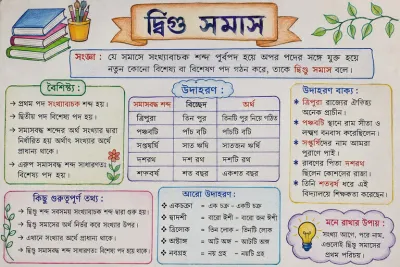 দ্বিগু সমাস
সংজ্ঞা : যে সমাসে সংখ্যাবাচক শব্দ পূর্বপদ হয়ে অপর পদের সঙ্গে যুক্ত হয়ে
নতুন কোনো বিশেষ্য বা বিশেষণ পদ গঠন করে, তাকে দ্বিগু সমাস বলে।
বৈশিষ্ট্য :
→ প্রথম পদ সংখ্যাবাচক শব্দ হয়।
→ দ্বিতীয় পদ বিশেষ্য পদ হয়।
→ সমাসবদ্ধ শব্দের অর্থ সংখ্যার দ্বারা
নির্ধারিত হয় অর্থাৎ সংখ্যার অর্থে
প্রাধান্য থাকে।
→ এরূপ সমাসবদ্ধ শব্দ সাধারণত
বিশেষ্য পদ হয়।
উদাহরণ :
সমাসবদ্ধ শব্দ বিচ্ছেদ অর্থ
ত্রিপুরা তিন পুর তিনটি পুর নিয়ে গঠিত
পঞ্চবটি পাঁচ বটি পাঁচটি বটি
সপ্তর্ষি সাত ঋষি সাতজন ঋষি
দশরথ দশ রথ দশটি রথ
শতবর্ষ শত বছর একশত বছর
উদাহরণ বাক্য :
★ ত্রিপুরা রাজ্যের ঐতিহ্য
অনেক প্রাচীন।
★ পঞ্চবটি স্থানে রাম সীতা ও
লক্ষ্মণ বনবাস করেছিলেন।
★ সপ্তর্ষিদের নাম আমরা
পুরাণে পাই।
★ রাবণের পিতা দশরথ
ছিলেন কোশলের রাজা।
★ তিনি শতবর্ষ ধরে এই
বিদ্যালয়ে শিক্ষকতা করেছেন।
কিছু গুরুত্বপূর্ণ তথ্য :
→ দ্বিগু শব্দ সবসময় সংখ্যাবাচক শব্দ দ্বারা শুরু হয়।
→ দ্বিগু সমাসের অর্থ নির্ভর করে সংখ্যার উপর।
→ এখানে সংখ্যার অর্থে প্রাধান্য থাকে।
→ দ্বিগু সমাসবদ্ধ শব্দ সাধারণত বিশেষ্য পদ হয়ে থাকে।
আরো উদাহরণ :
• একচক্রা - এক চক্র - একটি চক্র
• দ্বাদশী - বারো ঈশী - বারো জন ঈশী
• ত্রিলোক - তিন লোক - তিনটি লোক
• অষ্টাঙ্গ - আট অঙ্গ - আটটি অঙ্গ
• নবগ্রহ - নয় গ্রহ - নয়টি গ্রহ
মনে রাখার উপায় :
সংখ্যা আগে, পরে নাম,
এগুলোই দ্বিগু সমাসের
প্রথম পরিচয়।